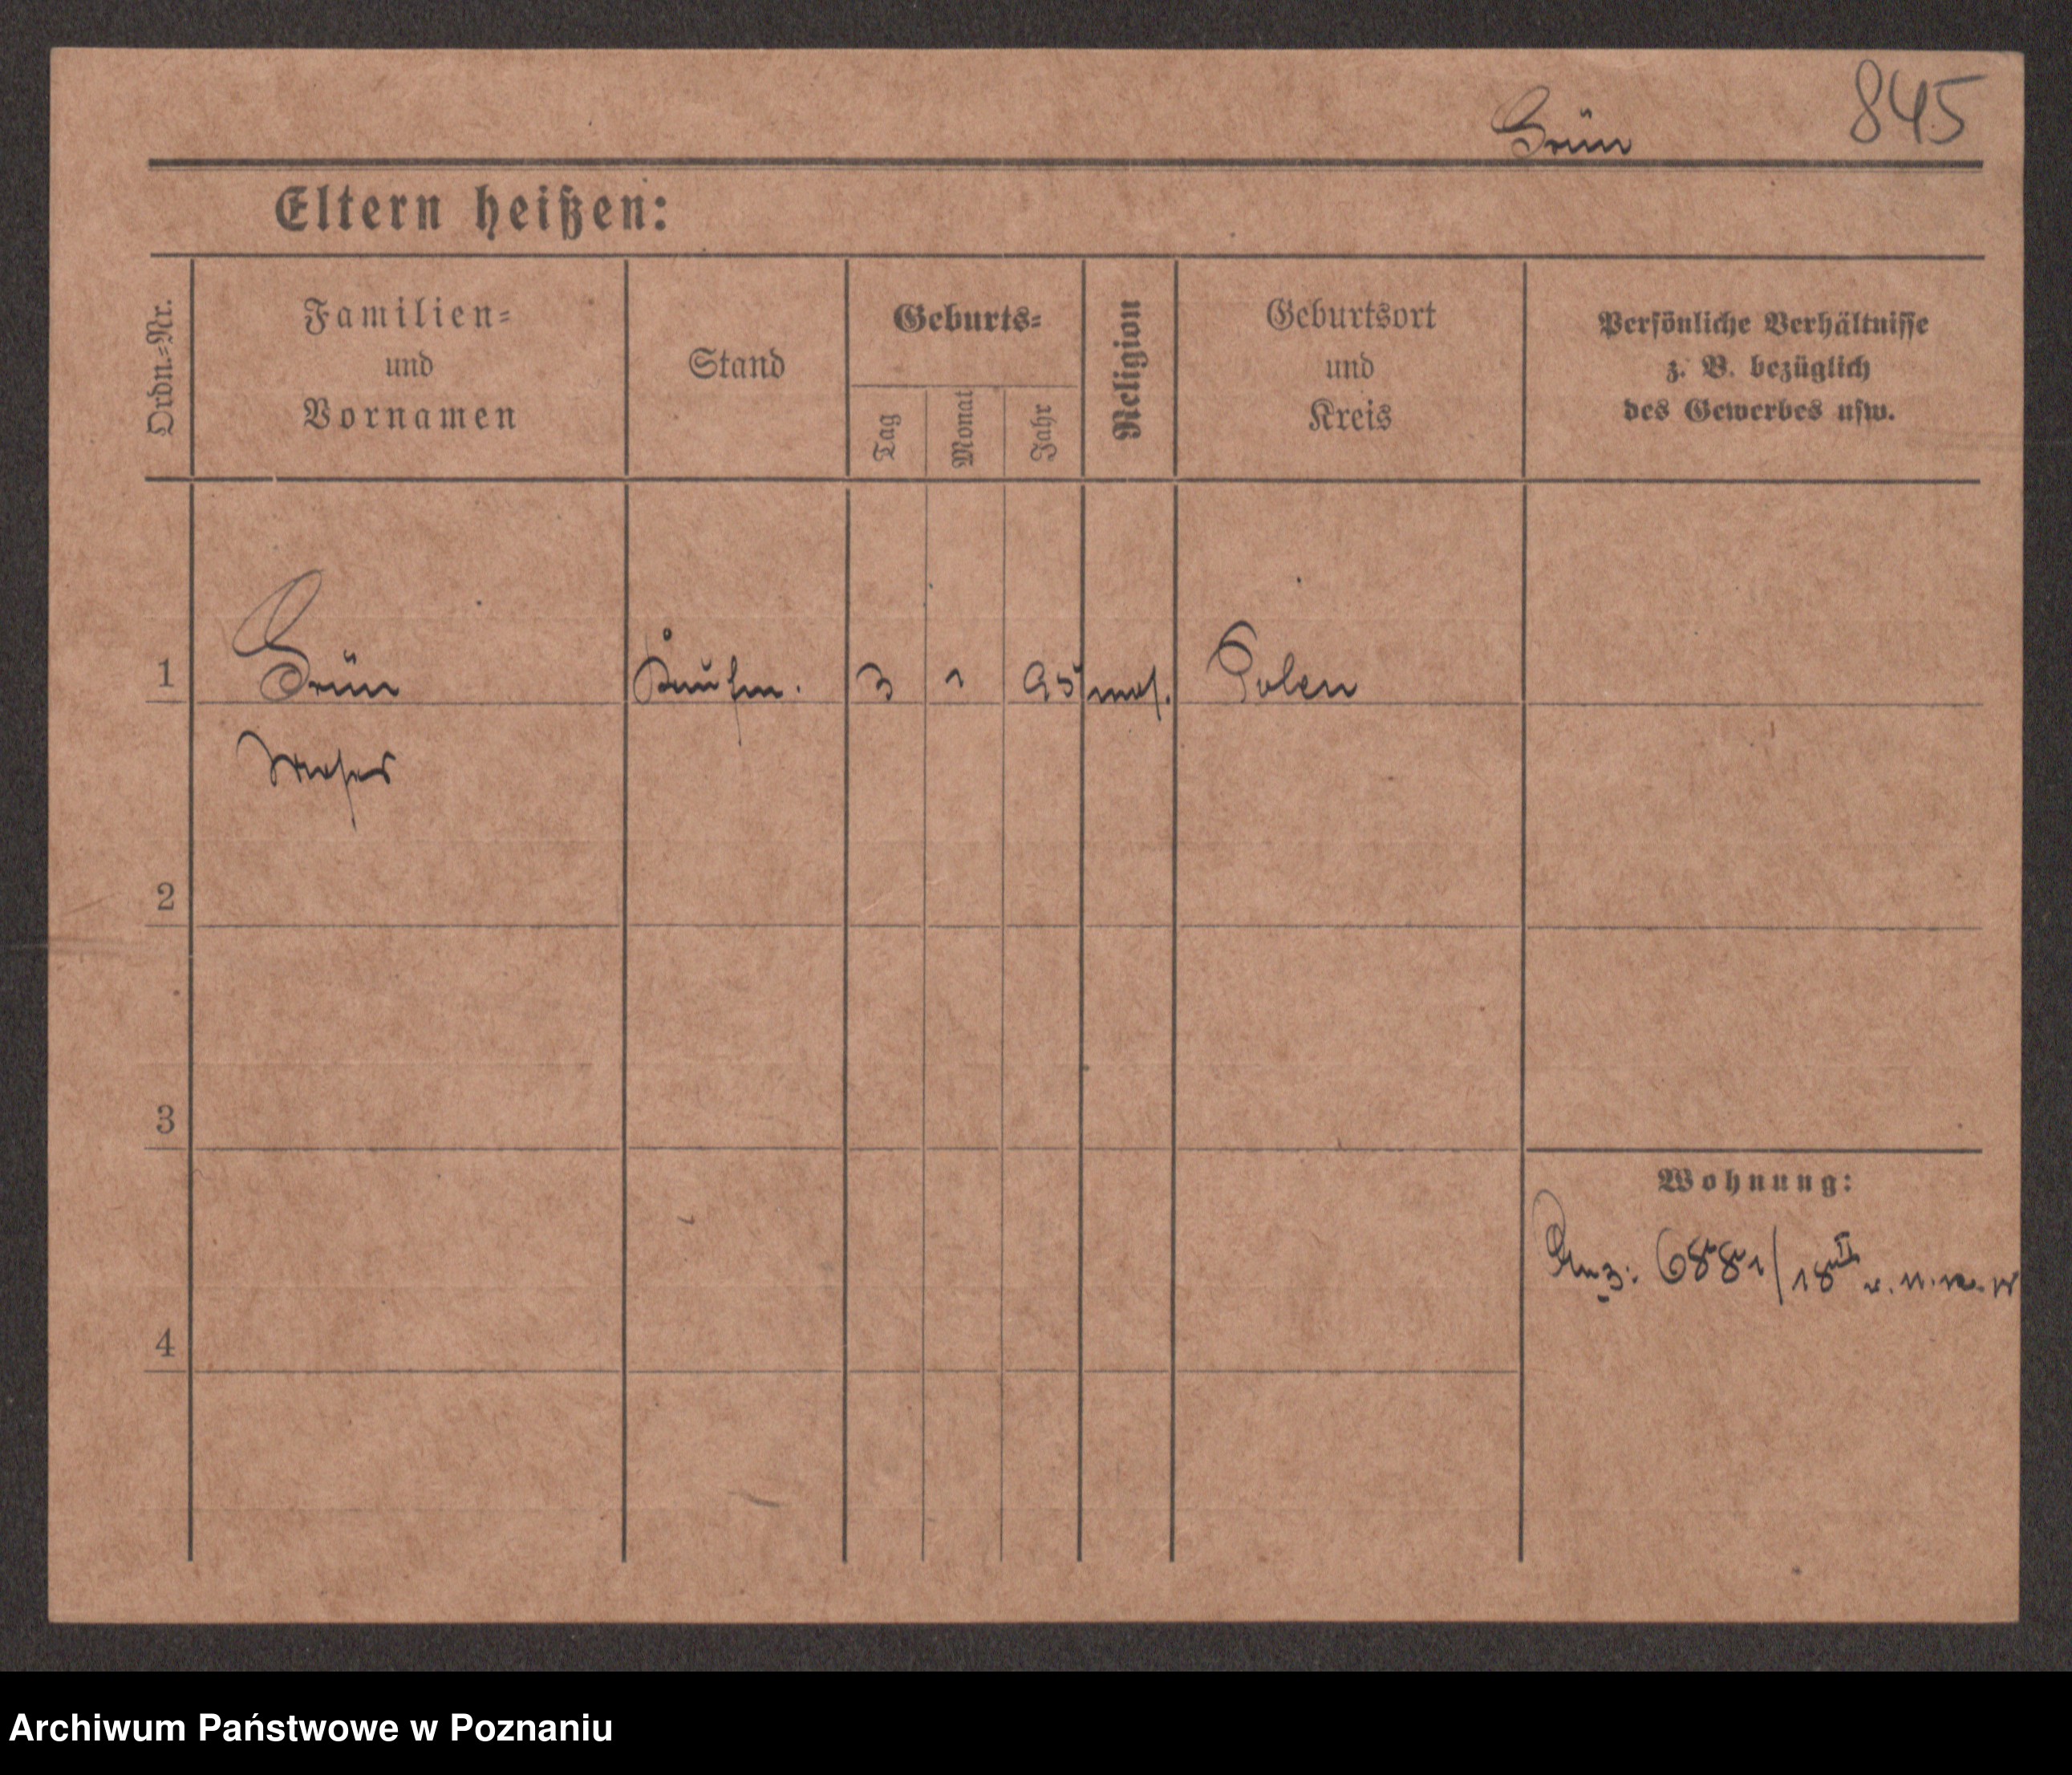 Grün 845
Eltern heißen:
Ordn.-Nr.
Familien-
und
Vornamen
Stand
Geburts-
Tag
Monat
Jahr
Religion
Geburtsort
und
Kreis
Persönliche Verhältnisse
z. B. bezüglich
des Gewerbes usw.
1 Grün Kaufm. 3 1 95 mos. Polen
Moses
2
3
Wohnung:
Anz: 6881/18 II
4
Archiwum Państwowe w Poznaniu